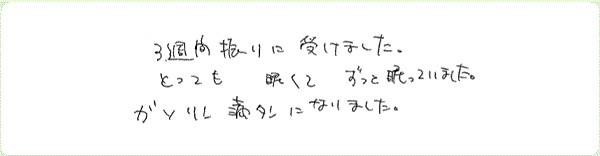 3週間振りに受けました。
とっても 眠くて ずっと眠っていました。
ガソリン満タンになりました。